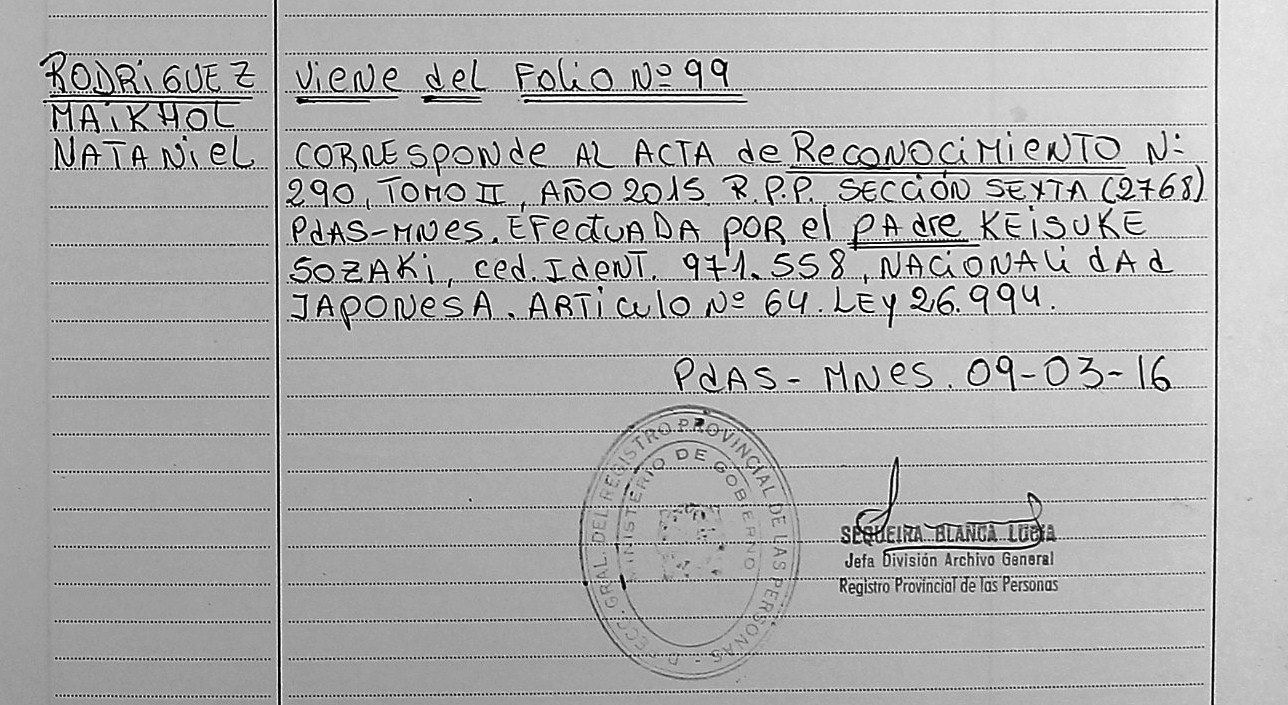 RODRiGUEZ
MAiKHOL
NATANiel
Viene del Folio Nº 99
CORRESponde AL ACTA de ReCONOCiMieNTO Nº
290, TOMO II, AÑO 2015 R.P.P. SECCiÓN SEXTA (2768)
PdAS-MNes. EFectuADA POR el PAdre KEiSUKE
SOZAKi, ced. IdeNT. 971.558, NACiONALidAd
JAPONesA. ARTiculo Nº 64. LEy 26.994.
PdAS - MNes. 09-03-16
GRAL. DEL REGISTRO PROVINCIAL DE LAS PERSONAS
MINISTERIO DE GOBIERNO
SEQUEIRA BLANCA LUCIA
Jefa División Archivo General
Registro Provincial de las Personas